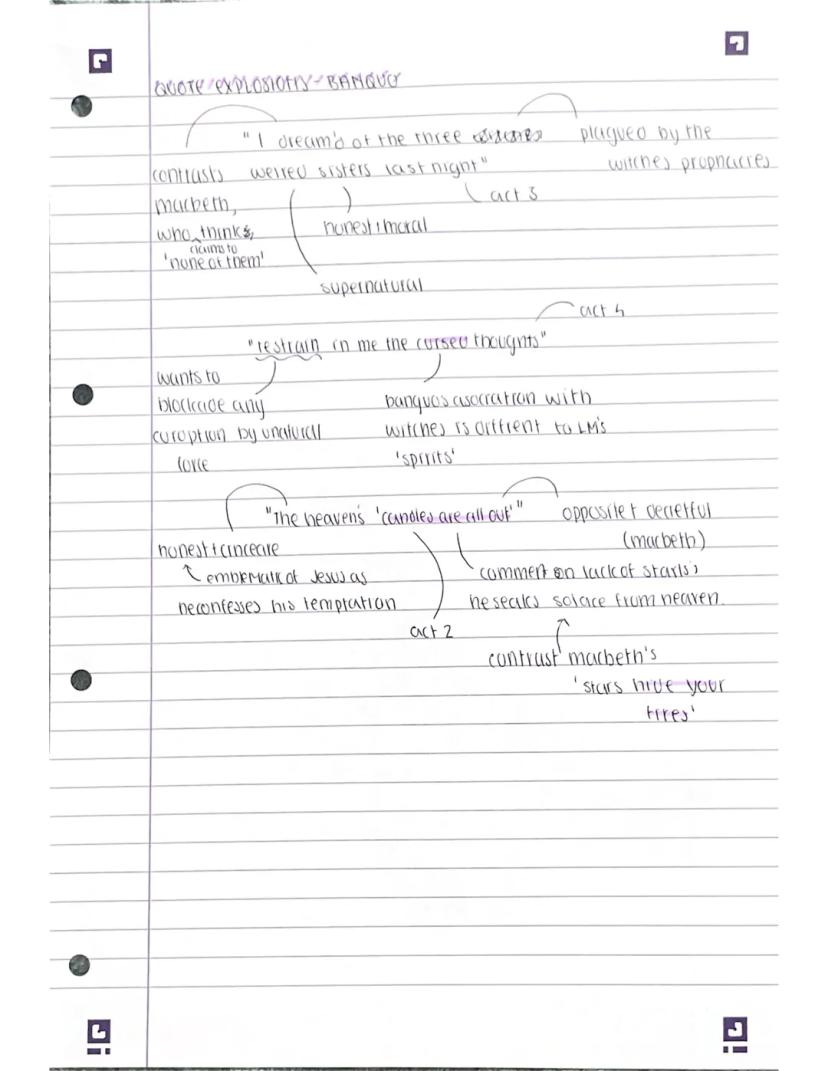 QUOTE EXPLOSIONS - BANQUO
"I dream'd of the three plagued by the
contrasts weired sisters last night" witches prophacies
macbeth, act 3
who thinks, honest + moral
claims to
'none of them'
supernatural
act 4
"restrain in me the cursed thoughts"
wants to
blockade any banquos asocration with
curoption by unaturall witches is diffrent to LM's
force 'spirits'
"The heaven's 'candles are all out'" opposite + deceitful
honest + cinceare (macbeth)
emblematic of Jesus as comment on lack of stars;
he confesses his temptation he seaks solace from heaven.
act 2
contrast macbeth's
'stars hide your
fires'